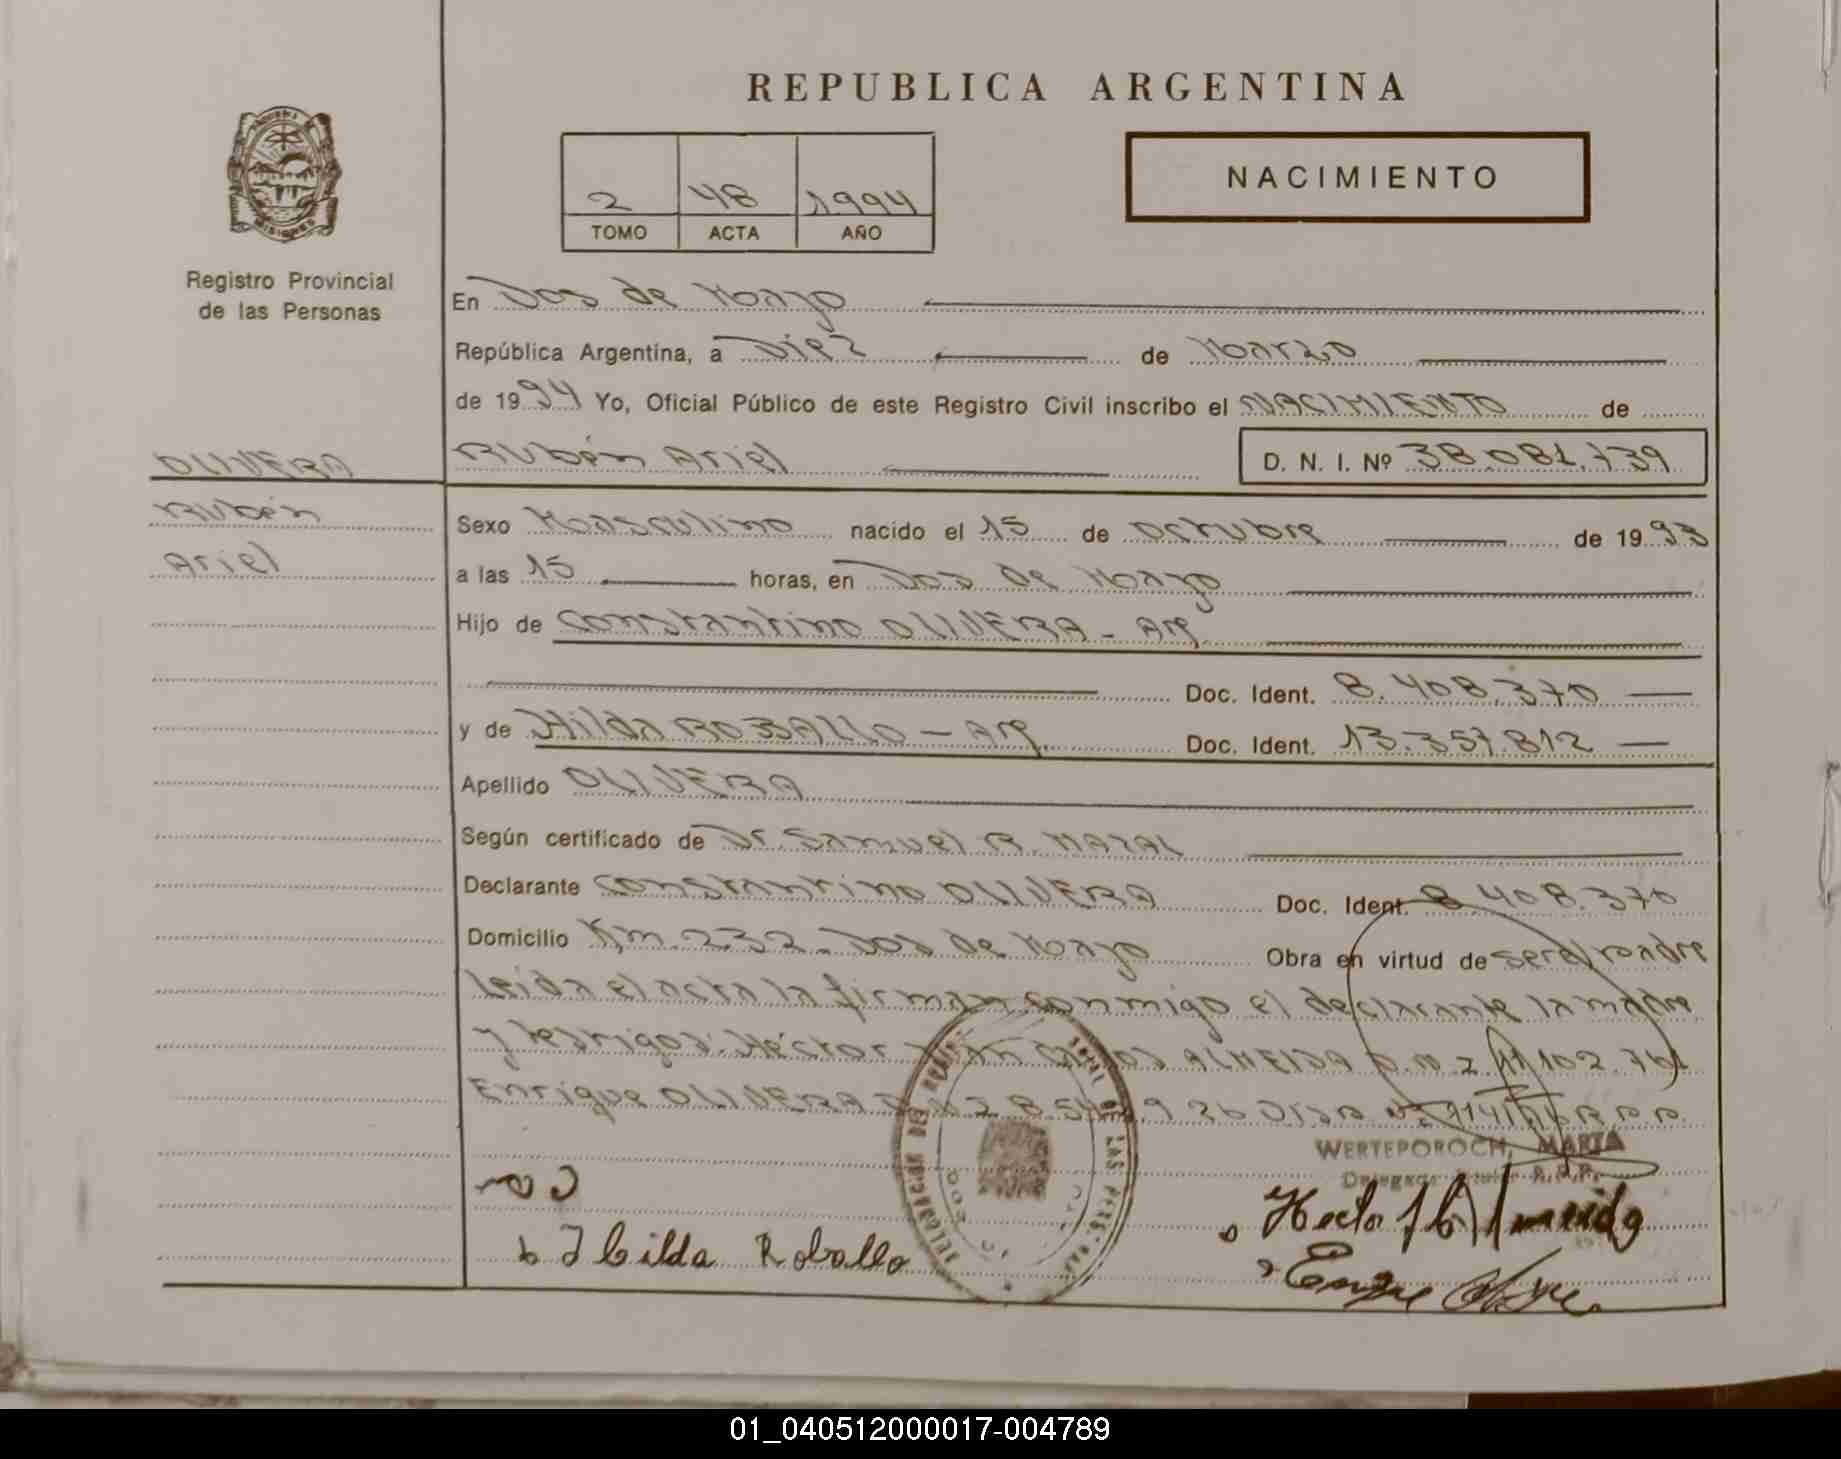 REPUBLICA ARGENTINA
2 48 1994
TOMO ACTA AÑO
NACIMIENTO
Registro Provincial
de las Personas
En Dos de Mayo
República Argentina, a Diez de Marzo
de 1994 Yo, Oficial Público de este Registro Civil inscribo el NACIMIENTO de
Rubén Ariel D. N. I. Nº 38.081.739
OLIVERA
Rubén
Ariel
Sexo Masculino nacido el 15 de octubre de 1993
a las 15 horas, en Dos de Mayo
Hijo de Constantino OLIVERA - Arg.
Doc. Ident. 8.408.370
y de Hilda ROBALLO - Arg. Doc. Ident. 13.357.812
Apellido OLIVERA
Según certificado de Dr. Samuel R. NAZAL
Declarante Constantino OLIVERA Doc. Ident. 8.408.370
Domicilio Km. 232 - Dos de Mayo Obra en virtud de ser el padre
Leída el acta la firman conmigo el declarante la madre
y testigos: Héctor ALMEIDA
Enrique OLIVERA
WERTEPOROCH, MARTA
DELEGACION DEL LAS PERS
Hilda Roballo
Hecto Almeida
01_040512000017-004789